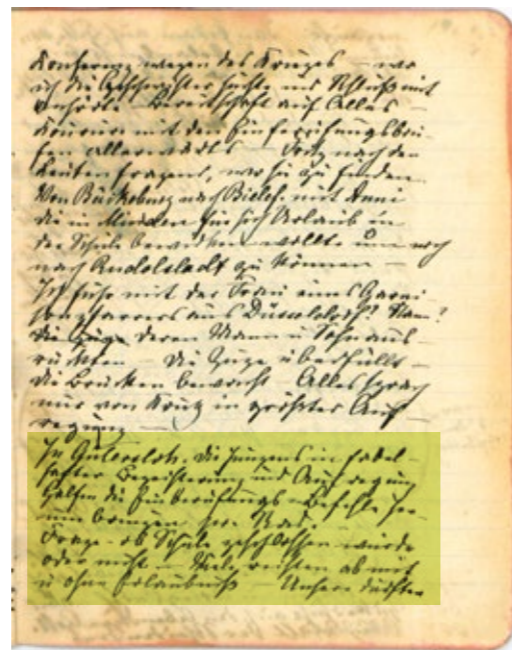 Konferenz wegen des Krieges – wo
ich die Geschwister suchte und
Bereitschaft auf Alles –
Kouriere mit den Einberufungsbrie-
fen allerwärts – nach den
Leuten fragend, wo sie zu finden
Von Bückeburg nach Bielef. mit Anni
die in Minden für sich Urlaub in
der Schule bewirken wollte um noch
nach Rudolstadt zu können –
Ich fuhr mit der Frau eines Garni-
sonpfarrers aus Düsseldorf? Nam?
die Züge deren Mann u Sohn aus-
rückten – die Züge überfüllt –
die Brücken bewacht – Alles sprach
nur von Krieg in größter Auf-
regung –
In Gütersloh. die Jungens in fabel-
hafter Begeisterung und Aufregung
halfen die Einberufungs-Befehle he-
rum bringen per Rad.
Frage – ob Schule geschlossen würde
oder nicht – Viele reisten ab mit
u ohne Erlaubniß – Unsere durften